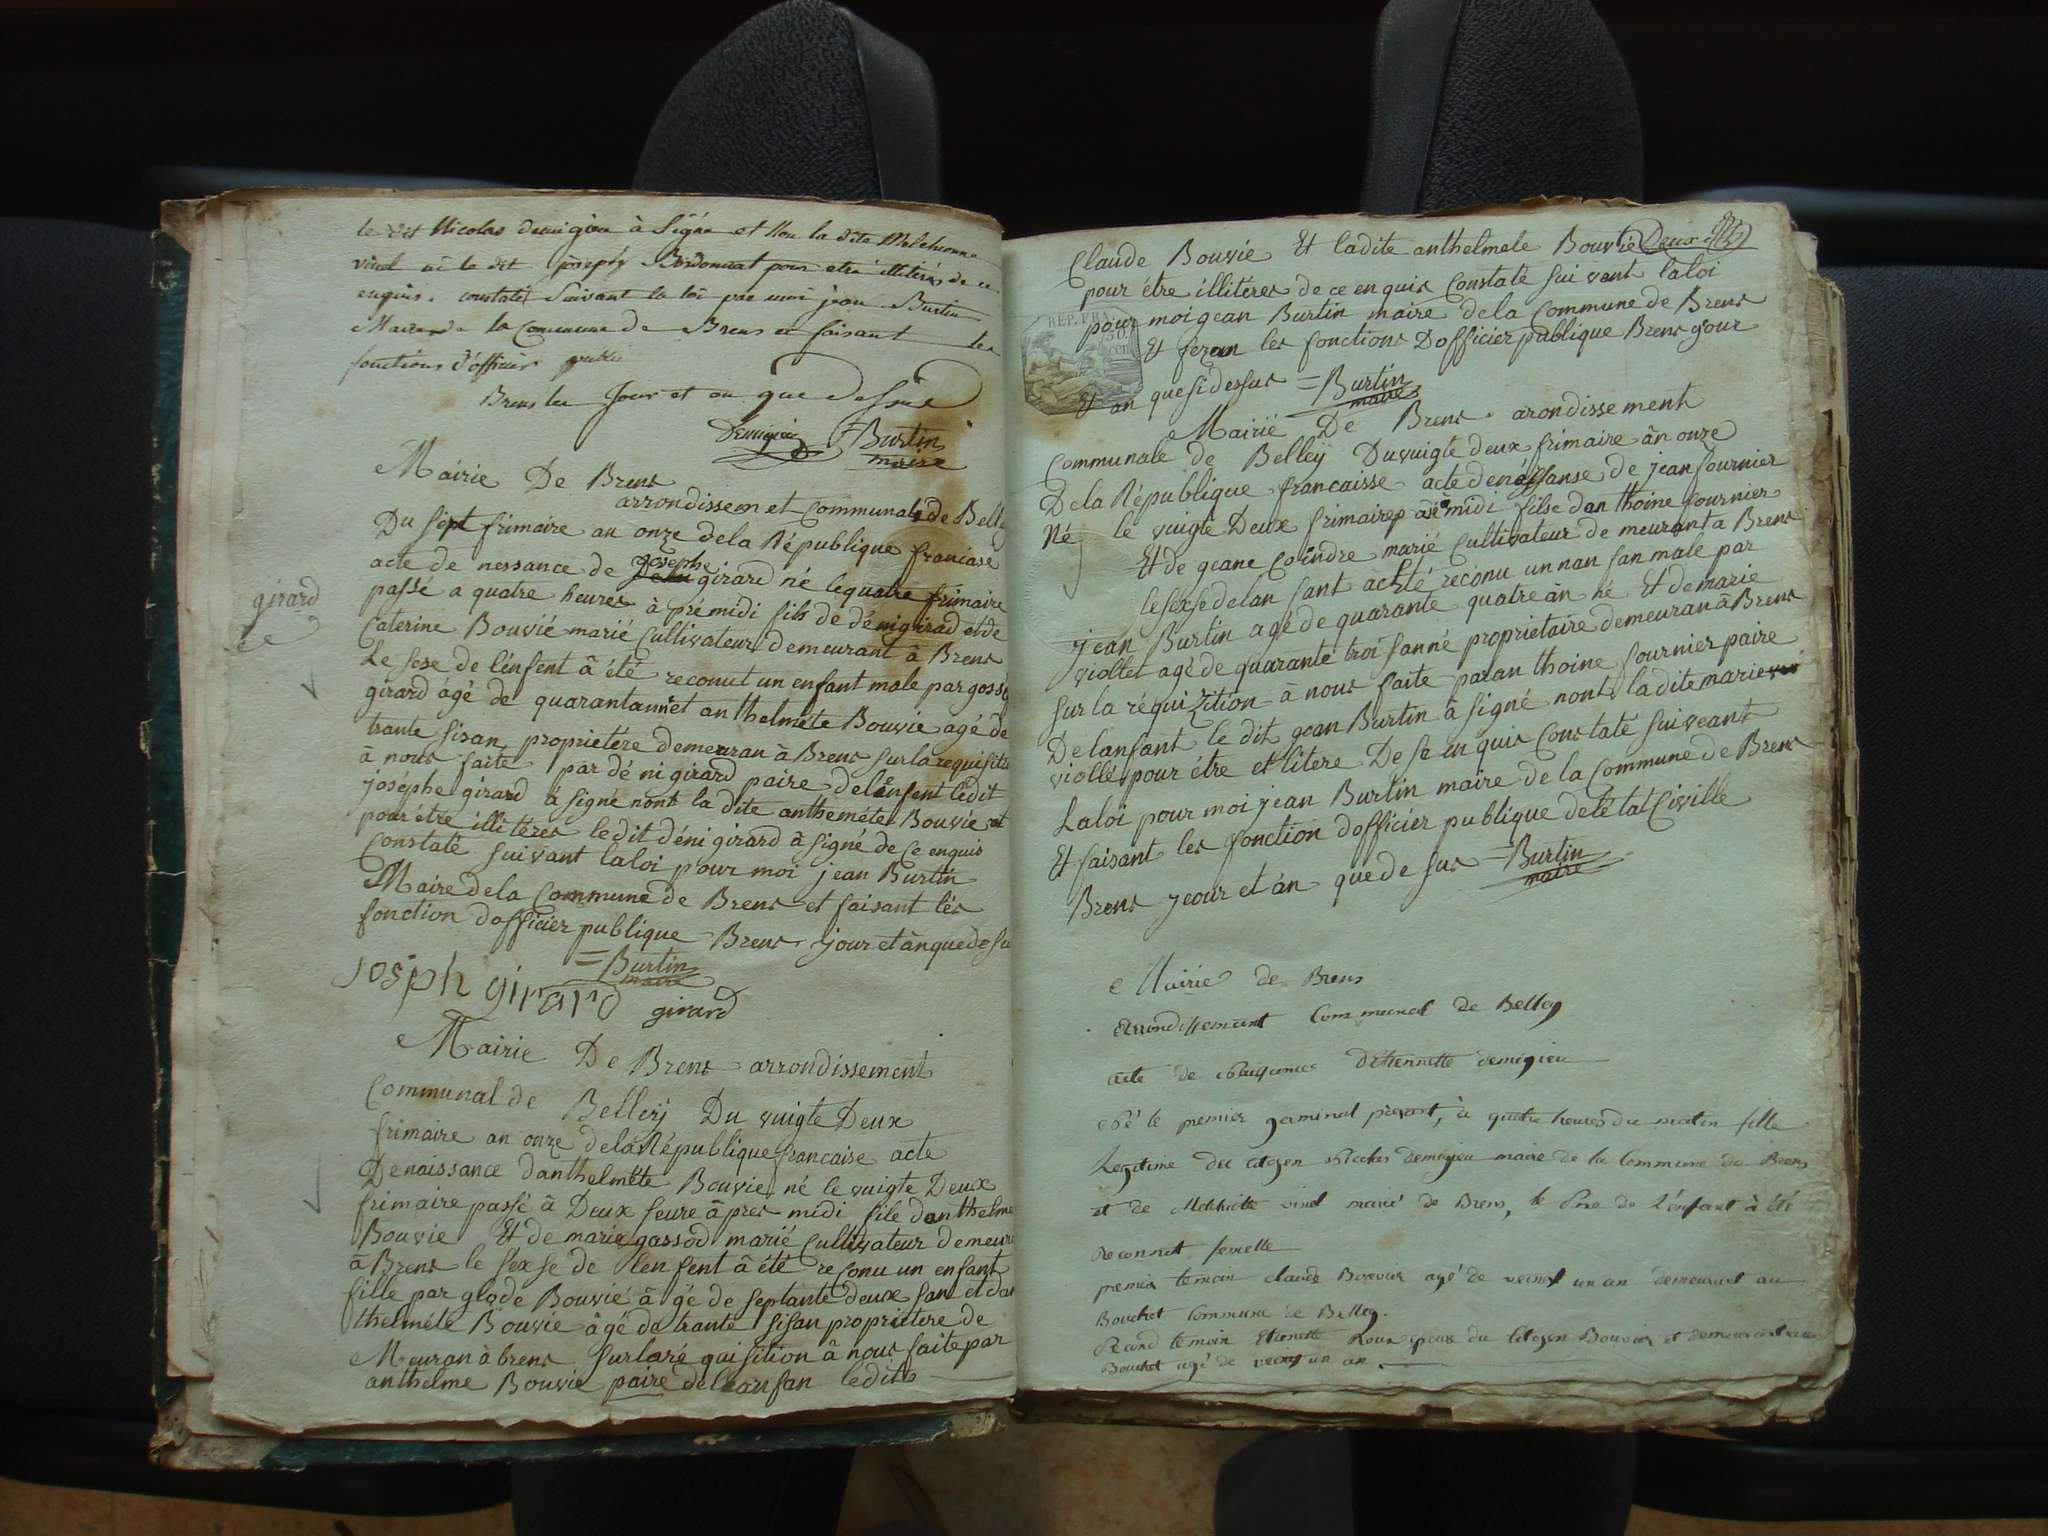 le dit Nicolas demigieu à Signé et Non la dite Melchionne
vind ni le dit joseph Bordonnat pour etre illitérés de ce
enquis. constaté Suivant la loi par moi jean Burtin
Maire de la Commune de Brens et faisant les
fonctions d'officier public
Brens les Jour et an que Dessus
Demigieu =Burtin
maire
Mairie De Brens
arrondissem et Communale de Belley
Du sept frimaire an onze dela République francaise
acte de nessance de josephe girard né lequatre frimaire
passé a quatre heures à pré midi fils de dénigirad et de
Caterine Bouvié marié Cultivateur demeurant â Brens
Le sexe de lénfent â été reconut un enfant male par gossé
girard âgé de quarantannét anthelméte Bouvie agé de
trante sisan proprietere demeuran à Brens sur la requisiti
à nous faite par dé ni girard paire delênfent ledit
joséphe girard à signé nont la dite antheméte Bouvie et
pour étre illitéres ledit déni girard à signé de ce enquis
Constaté suivant laloi pour moi jean Burtin
Maire dela Commune de Brens et faisant lés
fonction dofficier publique Brens jour et ànquedesu
=Burtin
maire
Josph girard girard
girard
Mairie De Brens arrondissement
Communal de Belleÿ Du vuigte Deux
frimaire an onze dela République francaise acte
De naissance danthelméte Bouvie né le vuigte Deux
frimaire passé à Deux heure âpres midi file danthelme
Bouvie Et de marie gassod marié Cultivateur demeur
à Brens le sexse de lenfent à été reconu un enfant
fille par glode Bouvié â gé de septante deux san et dan
thelméte Bouvie âgé de trante sisan proprietere de
Meuran à brens surlaré quisition à nous faite par
anthelme Bouvie paire deleanfan ledit
Claude Bouvie Et ladite anthelmele Bouvie Deux
pour étre illitéres de ce en quis Constaté sui vant laloi
pour moi gean Burtin maire dela Commune de Brens
REP. FRA.
Et fezan les fonctions Dofficier publique Brens gour
Et an quesidessus =Burtin
maire
Mairië De Brens arondissement
Communale de Belleÿ Du vuigte deux frimaire ân onze
De la République francaisse acte denéssanse de jean fournier
Né le vuigte Deux frimaire à midi filse dan thoine fournier
Et de geane Coindre marié Cultivateur de meurant a Brens
le sexse delan fant à été reconu un nan fan male par
jean Burtin agé de quarante quatre àn né Et de marie
viollet agé de quarante troi sanné proprietaire demeuran â Brens
sur la réquizition à nous faite par an thoine fournier paire
De lanfant le dit gean Burtin à signé nont ladite marie
viollé pour étre et litere De se en quis Constaté suiveant
Laloi pour moi jean Burtin maire de la Commune de Brens
Et faisant les fonction dofficier publique deté tat Civille
Brens jour et án que de sus =Burtin
maire
Mairie de Brens
Arrondissement Communal de Belley
acte de Naissance D'étiennette demigieu
Né le premier germinal present, à quatre heures du matin fille
Legitime du citoyen Nicolas demigieu maire de la Commune de Brens
et de Melchiotte vind marié de Brens, le sexe de L'enfant à été
Reconnut femelle
premier temoin claude Bouvier agé de veingt un an demeurant au
Bouchet Commune de Belley.
Second temoin Etienette Roux epouse du Citoyen Bouvier et demeurant au
Bouchet agé de veingt un an